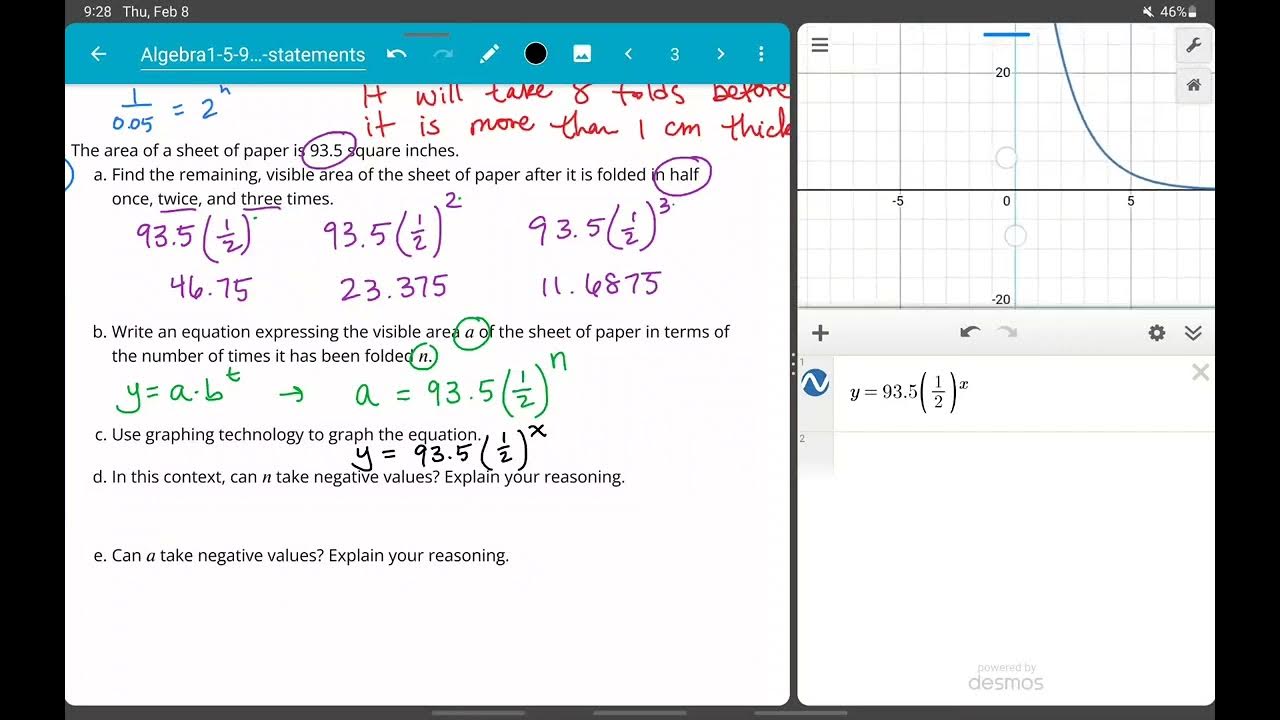 9:28 Thu, Feb 8
46%
Algebra1-5-9...-statements
3
1/0.05 = 2^n
It will take 8 folds before
it is more than 1 cm thick
The area of a sheet of paper is 93.5 square inches.
a. Find the remaining, visible area of the sheet of paper after it is folded in half
once, twice, and three times.
93.5(1/2) 93.5(1/2)^2 93.5(1/2)^3
46.75 23.375 11.6875
b. Write an equation expressing the visible area a of the sheet of paper in terms of
the number of times it has been folded n.
y = a·b^t → a = 93.5(1/2)^n
c. Use graphing technology to graph the equation.
y = 93.5(1/2)^x
d. In this context, can n take negative values? Explain your reasoning.
e. Can a take negative values? Explain your reasoning.
20
-5 0 5
-20
1
y = 93.5(1/2)^x
2
powered by
desmos